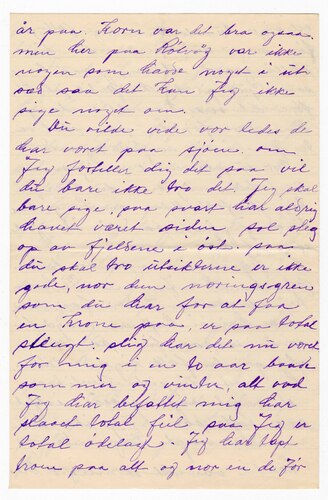 år paa. Korn var det bra ogsaa.
men her paa Rölvög var ikke
nogen som havde noget i ut
saa det kan Jeg ikke
sige noget om.
Du vilde vide vor ledes de
har voret paa sjöen. om
Jeg forteller dig det saa vil
du bare ikke tro det. Jeg skal
bare sige, saa svart har aldrig
havet været siden sol steg
op av fjeldene i öst. saa
du skal tro utsiktene er ikke
gode, nor den noringsgren
som du har for at faa
en krone paa, er saa total
sleugt. slig har dete nu voret
for mig i en to aar baade
sommer og vinter, alt vad
Jeg har befattet mig har
slaaet total feil, saa Jeg er
total ödelagt. Jeg har tapt
trone paa alt og nor en de för